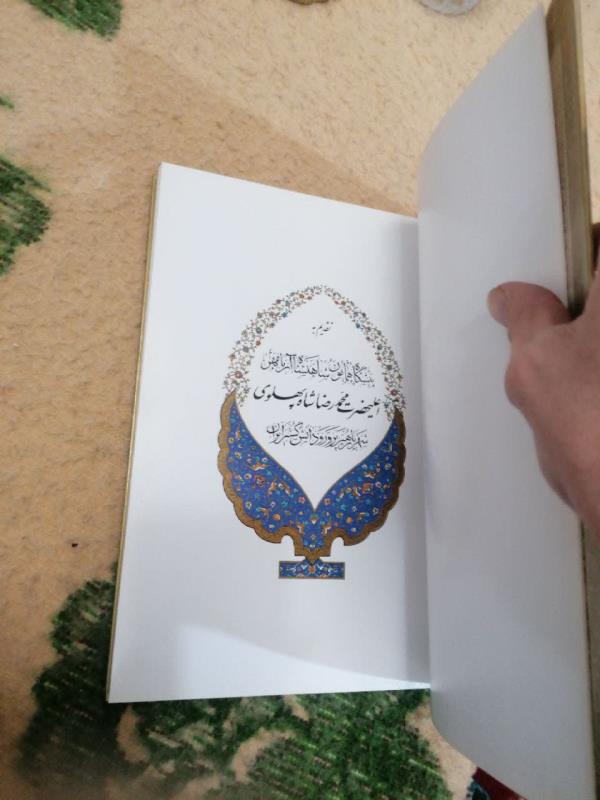 تقدیم به
پیشگاه همایون شاهنشاه آریامهر
اعلیحضرت محمدرضا شاه پهلوی
شهریار هنرپرور و دانش گستر ایران